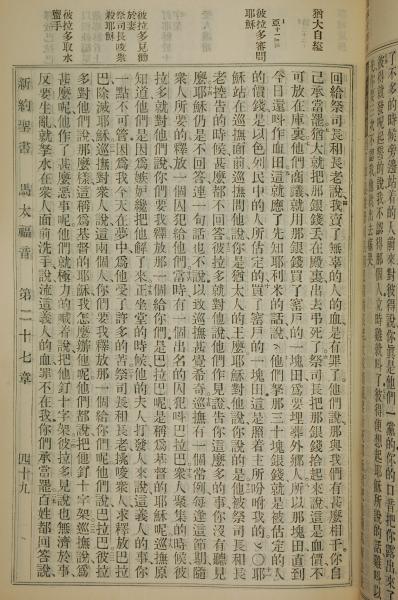 了不多的時候旁邊站着的人前來對彼得說你眞是他們一黨的你的口音把你露出來了
猶大自縊
彼拉多審問耶穌
彼拉多見勸於妻
祭司長唆衆殺耶穌
彼拉多取水盥手
回給祭司長和長老說我賣了無辜的人的血是有罪了他們說那與我們有甚麼相干你自
己承當罷猶大就把那銀錢丟在殿裏出去弔死了祭司長把那銀錢拾起來說這是血價不
可放在庫裏他們商議就用那銀錢買了窰戶的一塊田爲要埋葬外鄉人所以那塊田直到
今日還呌作血田這就應了先知耶利米的話說他們拏那三十塊銀錢就是被估定的人
的價錢是以色列民中的人所估定的買了窰戶的一塊田這是照着主所吩咐我的〇耶
穌站在巡撫面前巡撫問他說你是猶太人的王麼耶穌對他說你說的是他被祭司長和長
老控告的時候甚麼都不回答彼拉多就對他說他們作見證告你這麼多的事你沒有聽見
麼耶穌仍是不回答連一句話也不說以致巡撫甚覺希奇巡撫有一個常例每逢這節期隨
衆人所要的釋放一個囚犯給他們當時有一個出名的囚犯呌巴拉巴衆人聚集的時候彼
拉多就對他們說你們要我釋放那一個給你們是巴拉巴呢是稱爲基督的耶穌呢巡撫原
知道他們是因爲嫉妒纔把他解了來正坐堂的時候他的夫人打發人來說這義人的事你
一點不可管因爲我今天在夢中爲他受了許多的苦祭司長和長老挑唆衆人求釋放巴拉
巴除滅耶穌巡撫對衆人說這兩個人你們要我釋放那一個給你們呢他們說巴拉巴彼拉
多對他們說那麼樣這稱爲基督的耶穌我怎麼辦他呢他們都說把他釘十字架巡撫說爲
甚麼呢他作了甚麼惡事呢他們就極力的喊着說把他釘十字架彼拉多見說也無濟於事
反要生亂就拏水在衆人面前洗手說流這義人的血罪不在我你們承當罷百姓都回答說
新約聖書 馬太福音 第二十七章 四十九